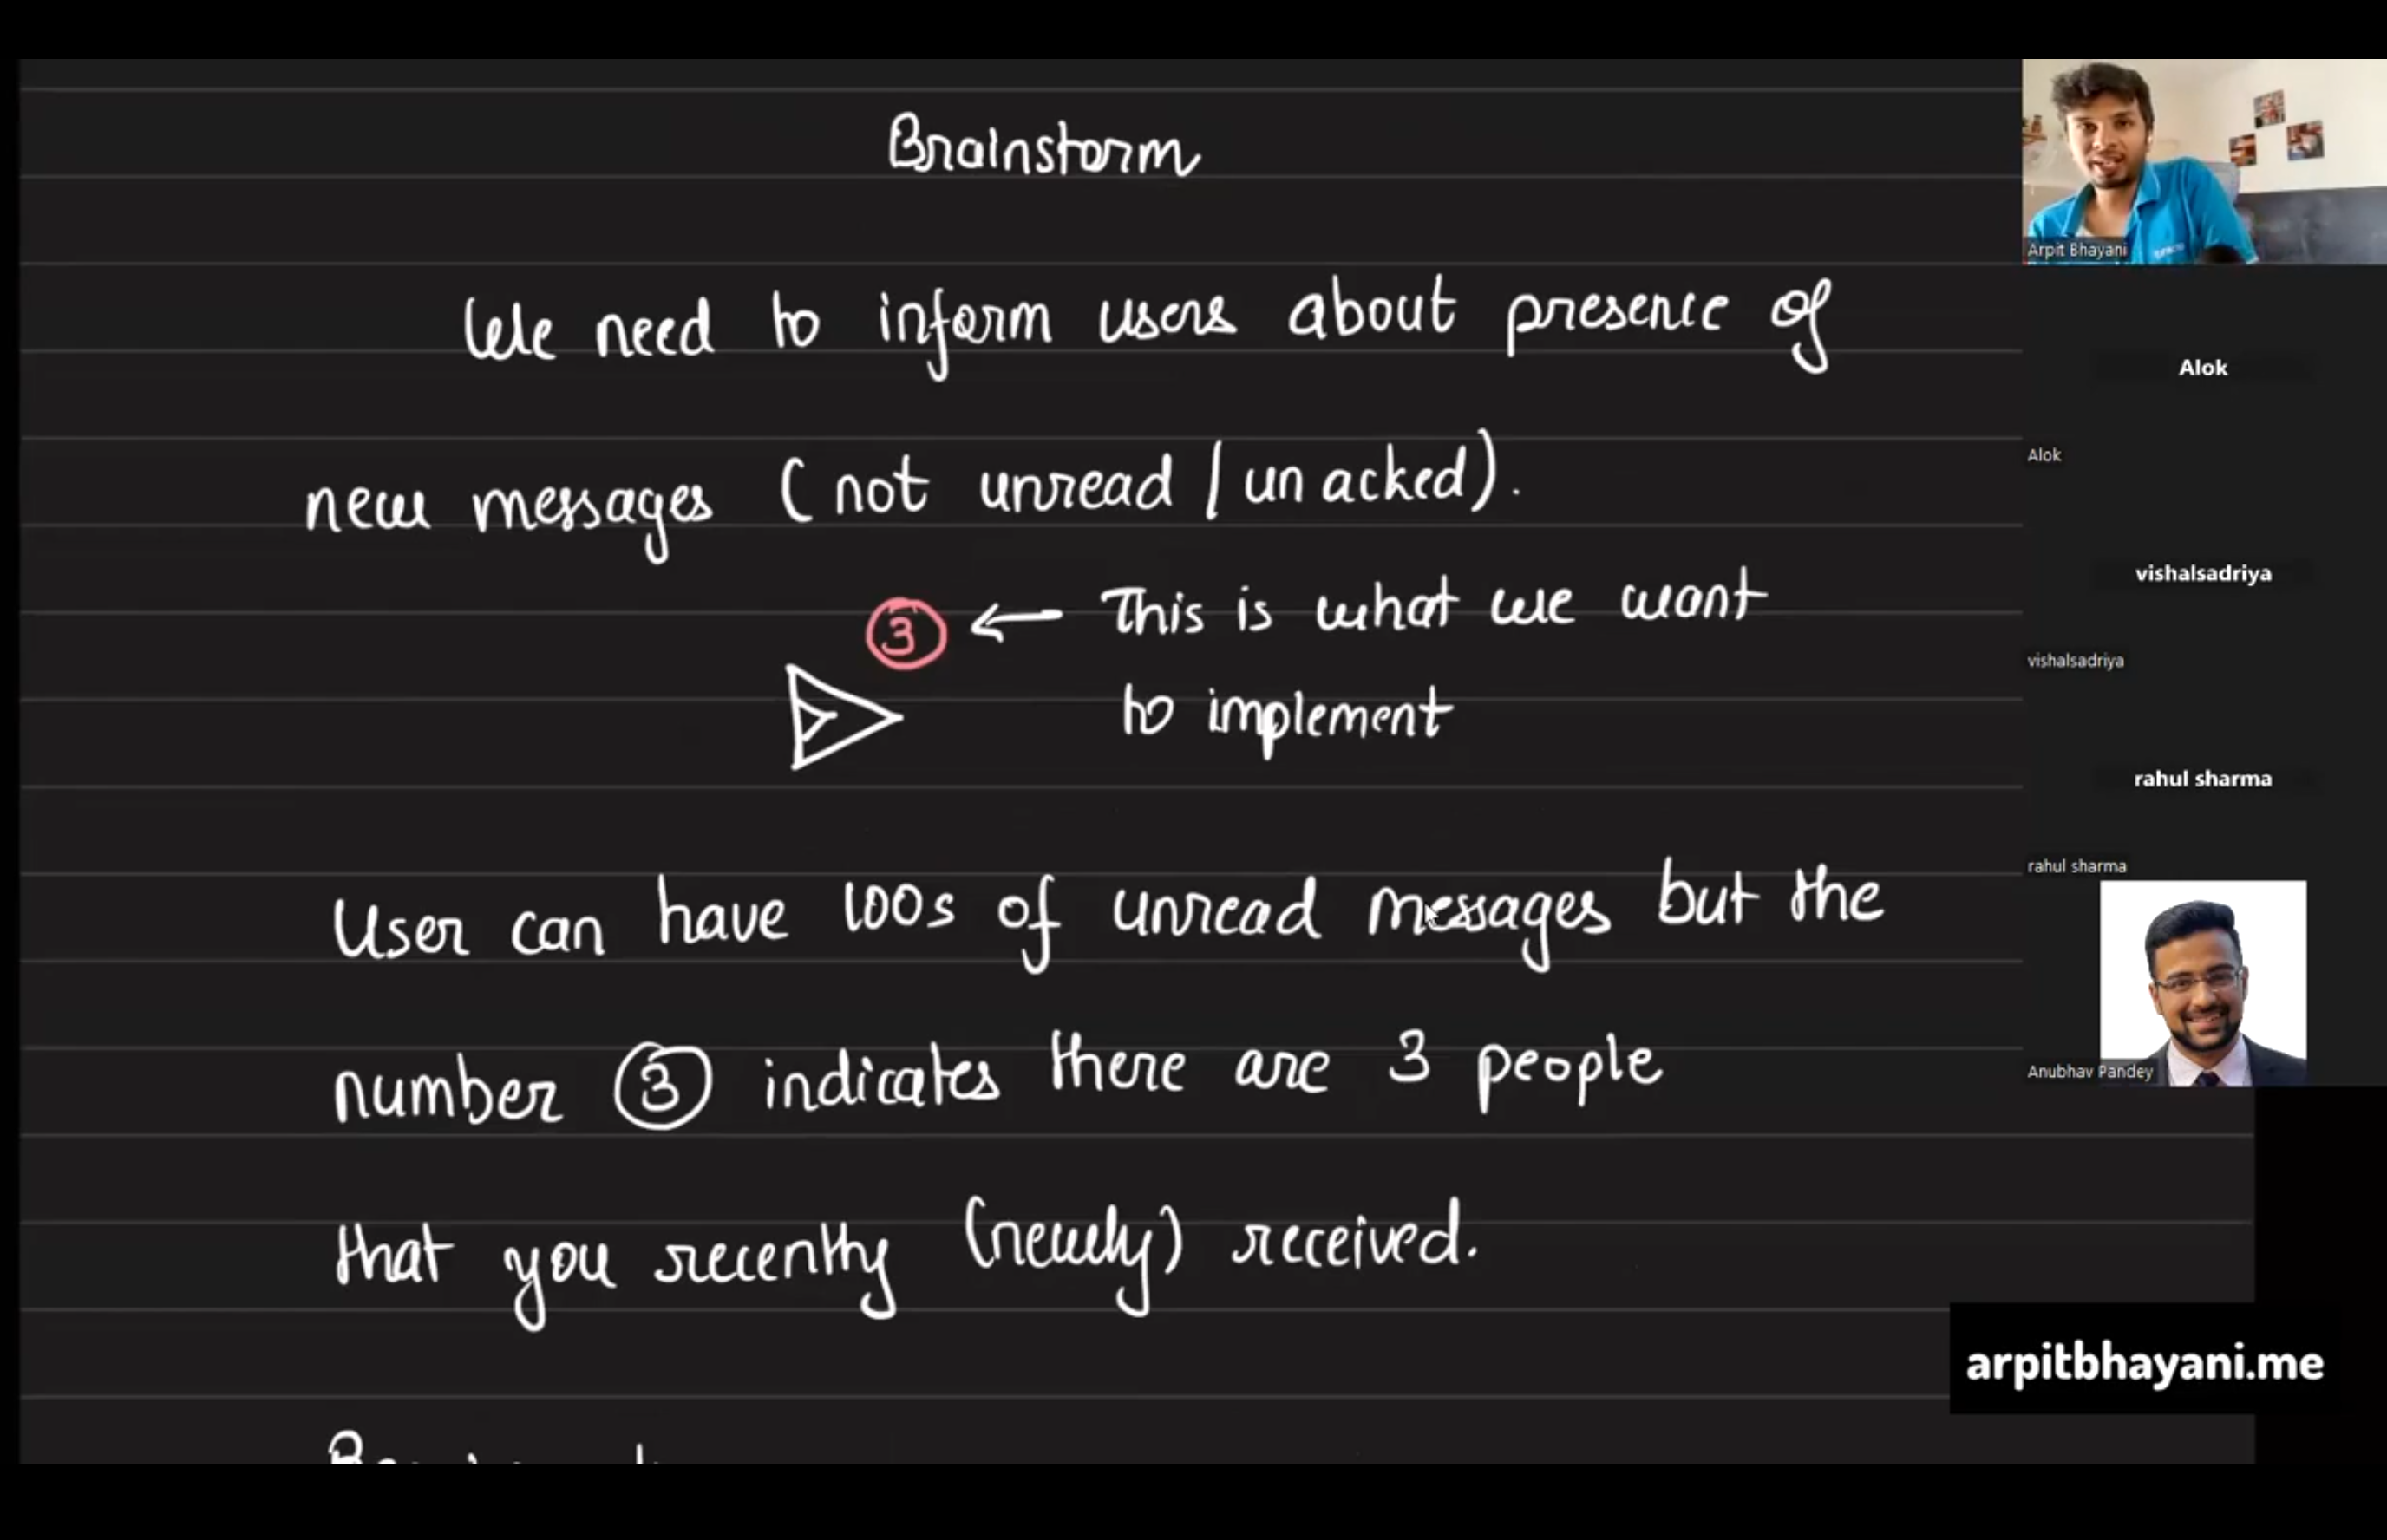 Brainstorm
We need to inform users about presence of
new messages (not unread / un acked).
3 ← This is what we want
to implement
User can have 100s of unread messages but the
number 3 indicates there are 3 people
that you recently (newly) received.
Arpit Bhayani
Alok
Alok
vishalsadriya
vishalsadriya
rahul sharma
rahul sharma
Anubhav Pandey
arpitbhayani.me